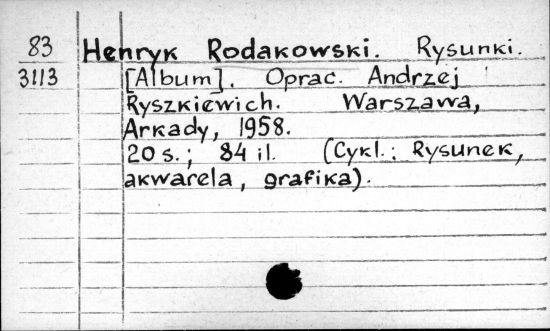 83 Henryk Rodakowski. Rysunki.
3113 [Album]. Oprac. Andrzej
Ryszkiewich. Warszawa,
Arkady, 1958.
20 s.; 84 il. (Cykl.: Rysunek,
akwarela, grafika).